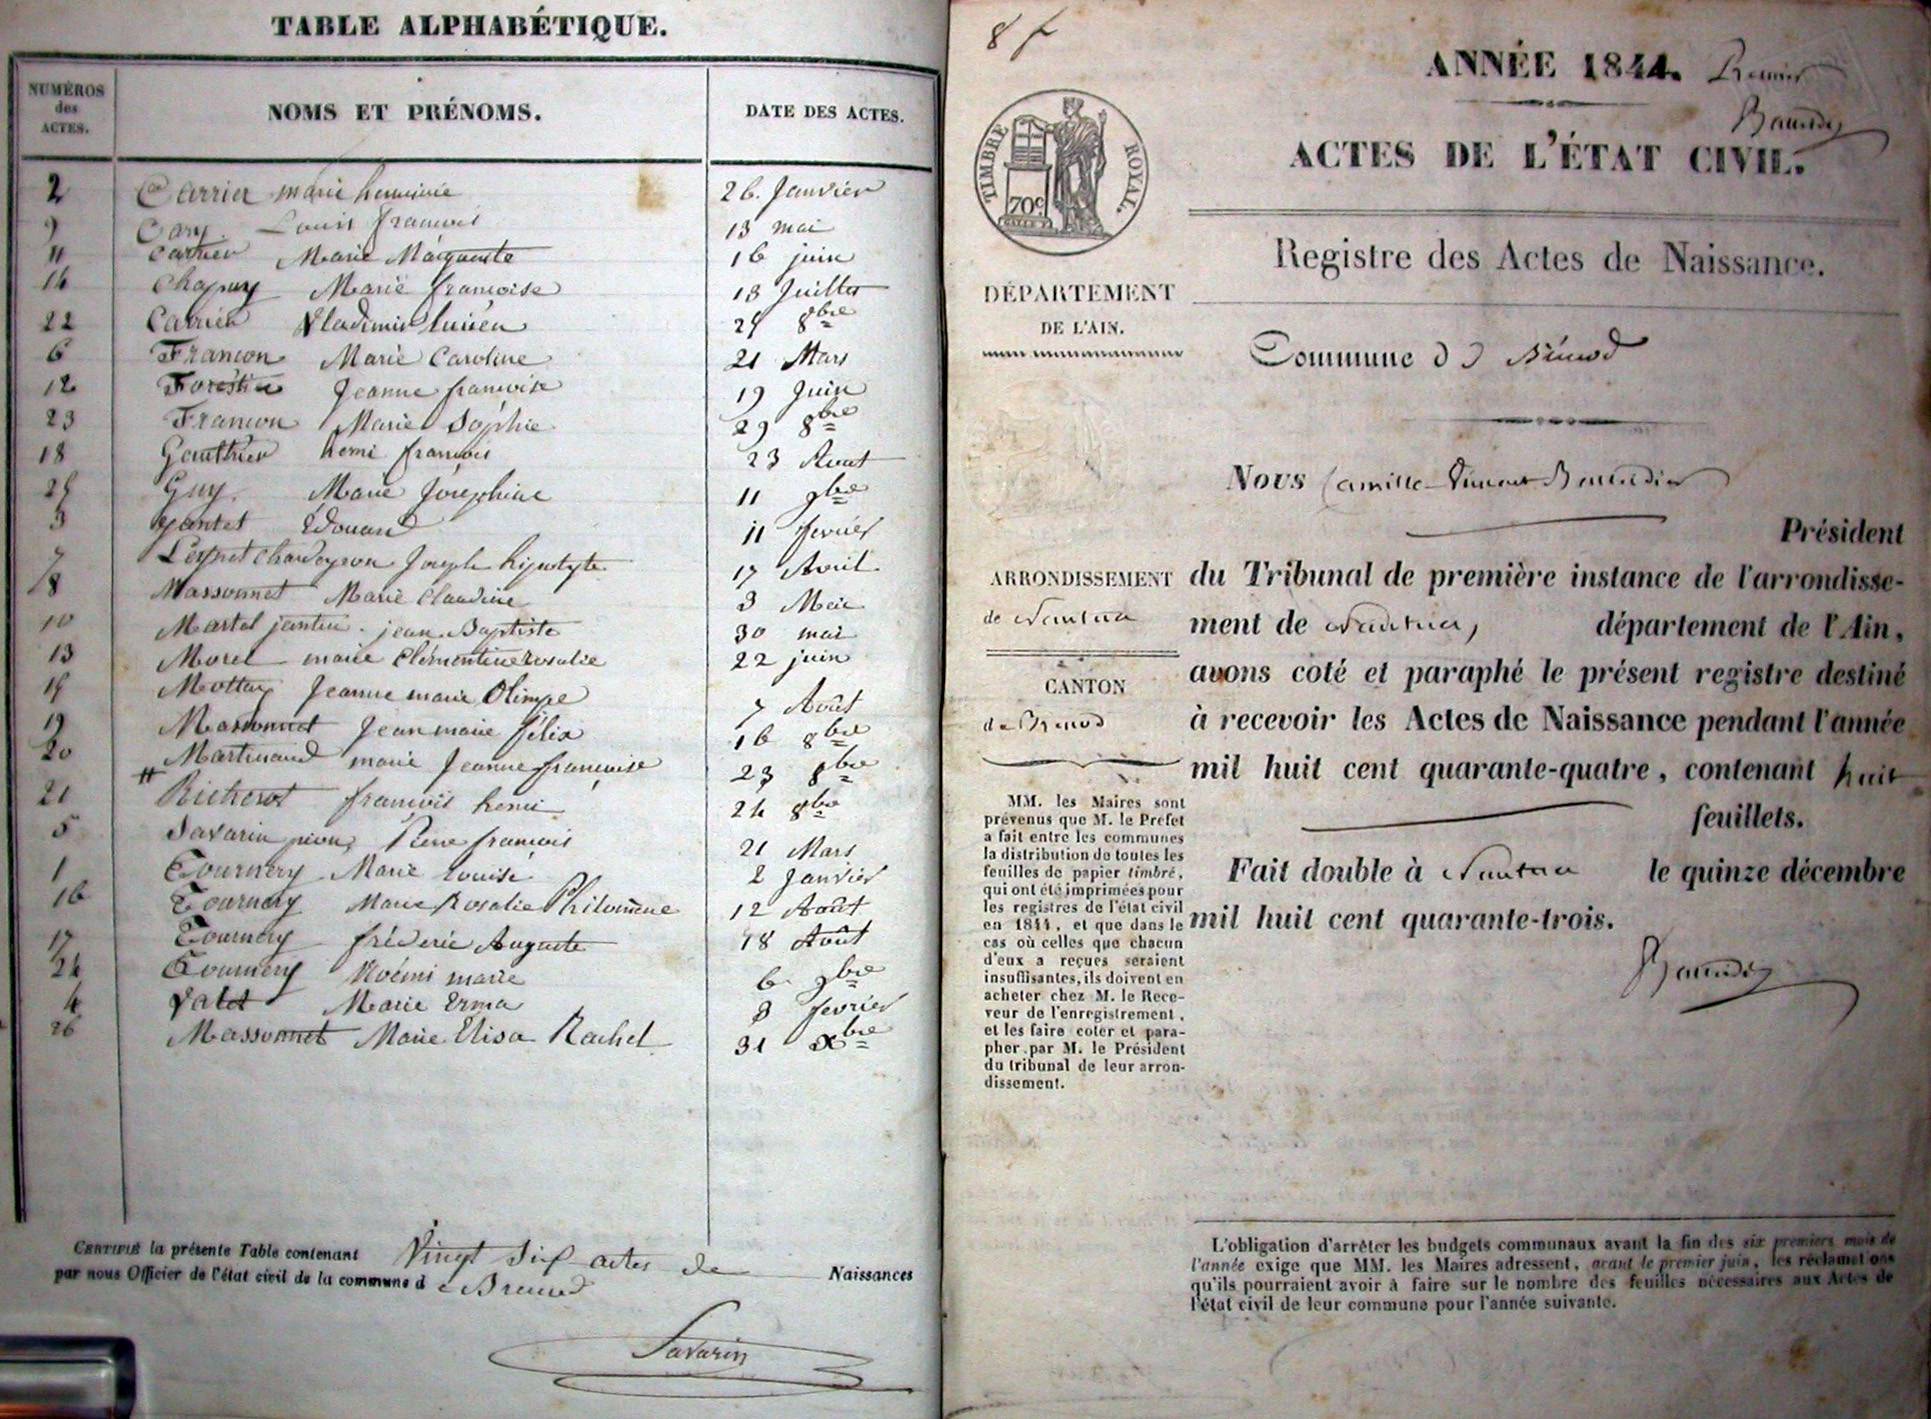 TABLE ALPHABÉTIQUE.
NUMÉROS des ACTES. NOMS ET PRÉNOMS. DATE DES ACTES.
2 Carrier marie 26. Janvier
9 Cary Louis françois 13 mai
11 Carrier Marie Marguerite 16 juin
14 Chapuy Marie françoise 13 Juillet
22 Carrier Vladimir lucien 25 8bre
6 Françon Marie Caroline 21 Mars
12 Forestier Jeanne françoise 19 Juin
23 Françon Marie Sophie 29 8bre
18 Gauthier henri françois 23 Aout
25 Guy. Marie Joséphine 11 9bre
3 jantet Edouard 11 fevrier
7 Chardeyron Joseph hipolyte 17 Avril
8 Massonnet Marie Claudine 3 Mai
10 Martel jantin. jean Baptiste 30 mai
13 Morel marie Clémentine rosalie 22 juin
15 Mottay Jeanne marie Olimpe 7 Août
19 Massonnet Jean marie félix 16 8bre
20 Martinand marie Jeanne françoise 23 8bre
21 Richerot françois henri 24 8bre
5 Savarin pion, Rene françois 21 Mars
1 Tournery Marie Louise 2 Janvier
16 Tournery Marie Rosalie Philomène 12 Août
17 Tournery fréderic Auguste 18 Août
24 Tournery Noémi marie 6 9bre
4 Valet Marie Erma 8 fevrier
26 Massonnet Marie Elisa Rachel 31 Xbre
CERTIFIÉ la présente Table contenant Vingt Six actes de Naissances
par nous Officier de l'état civil de la commune d e Brenod
Savarin
8 f
ANNÉE 1844. Premier
Baundier
ACTES DE L'ÉTAT CIVIL.
TIMBRE ROYAL.
70c
Registre des Actes de Naissance.
DÉPARTEMENT
DE L'AIN.
Commune d e Brénod
Nous Camille Vincent Baundier
Président
ARRONDISSEMENT
de Nantua
CANTON
de Brenod
du Tribunal de première instance de l'arrondisse-
ment de Nantua, département de l'Ain,
avons coté et paraphé le présent registre destiné
à recevoir les Actes de Naissance pendant l'année
mil huit cent quarante-quatre, contenant huit
feuillets.
Fait double à Nantua le quinze décembre
mil huit cent quarante-trois.
Baundier
MM. les Maires sont
prévenus que M. le Préfet
a fait entre les communes
la distribution de toutes les
feuilles de papier timbré,
qui ont été imprimées pour
les registres de l'état civil
en 1844, et que dans le
cas où celles que chacun
d'eux a reçues seraient
insuffisantes, ils doivent en
acheter chez M. le Rece-
veur de l'enregistrement,
et les faire coter et para-
pher par M. le Président
du tribunal de leur arron-
dissement.
L'obligation d'arrêter les budgets communaux avant la fin des six premiers mois de
l'année exige que MM. les Maires adressent, avant le premier juin, les réclamations
qu'ils pourraient avoir à faire sur le nombre des feuilles nécessaires aux Actes de
l'état civil de leur commune pour l'année suivante.